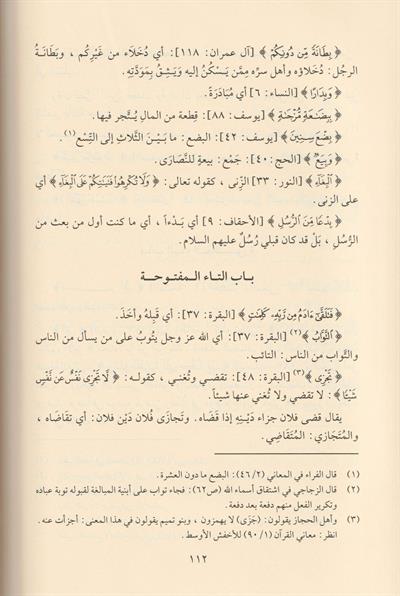 ﴿ بِطَانَةً مِّن دُونِكُمْ ﴾ [آل عمران: ١١٨]: أي دُخَلَاء من غَيْرِكُم ، وبَطَانَةُ
الرجُل: دُخَلاؤه وأهل سرِّه مِمَّن يَسْكُنُ إليه وَيَثِقُ بِمَوَدَّتِهِ.
﴿ وَبِدَارًا ﴾ [النساء: ٦] أي مُبَادَرَةً.
﴿ بِبِضَٰعَةٍ مُّزْجَىٰةٍ ﴾ [يوسف: ٨٨]: قِطعة من المالِ يُتَّجر فيها.
﴿ بِضْعَ سِنِينَ ﴾ [يوسف: ٤٢]: البضع: ما بَيْنَ الثَّلاثِ إلى التِّسْعِ(١).
﴿ وَبِيَعٌ ﴾ [الحج: ٤٠]: جَمْع: بيعةٍ للنَّصَارَى.
﴿ الْبِغَآءِ ﴾ [النور: ٣٣] الزِّنى ، كقوله تعالى: ﴿ وَلَا تُكْرِهُوا فَتَيَٰتِكُمْ عَلَى الْبِغَآءِ ﴾ أي
على الزنى.
﴿ بِدْعًا مِّنَ الرُّسُلِ ﴾ [الأحقاف: ٩] أي بَدْءاً ، أي ما كنت أول من بعث من
الرُّسُلِ ، بَلْ قد كان قبلي رُسُلٌ عليهم السلام.
باب التاء المفتوحة
﴿ فَتَلَقَّىٰٓ ءَادَمُ مِن رَّبِّهِۦ كَلِمَٰتٍ ﴾ [البقرة: ٣٧]: أي قَبِلَهُ وأخَذَ.
﴿ التَّوَّابُ ﴾(٢) [البقرة: ٣٧]: أي الله عز وجل يتُوبُ على من يسأل من الناس
والتَّواب من الناس: التائب.
﴿ تَجْزِى ﴾(٣) [البقرة: ٤٨]: تقضي وتُغني ، كقولـه: ﴿ لَّا تَجْزِى نَفْسٌ عَن نَّفْسٍ
شَيْئًا ﴾: لا تقضي ولا تُغني عنها شيئاً.
يقال قضى فلان جزاء دَيْنِهِ إذا قَضَاه. وتَجازَى فُلان دَيْن فلان: أي تقاضَاه ،
والمُتَجَازي: المُتَقَاضِي.
(١) قال الفراء في المعاني (٤٦/٢): البضع ما دون العشرة.
(٢) قال الزجاجي في اشتقاق أسماء الله (ص٦٢): فجاء تواب على أبنية المبالغة لقبوله توبة عباده
وتكرير الفعل منهم دفعة بعد دفعة.
(٣) وأهل الحجاز يقولون: (جَزَى) لا يهمزون ، وبنو تميم يقولون في هذا المعنى: أجزأت عنه.
انظر: معاني القرآن (٩٠/١) للأخفش الأوسط.
١١٢